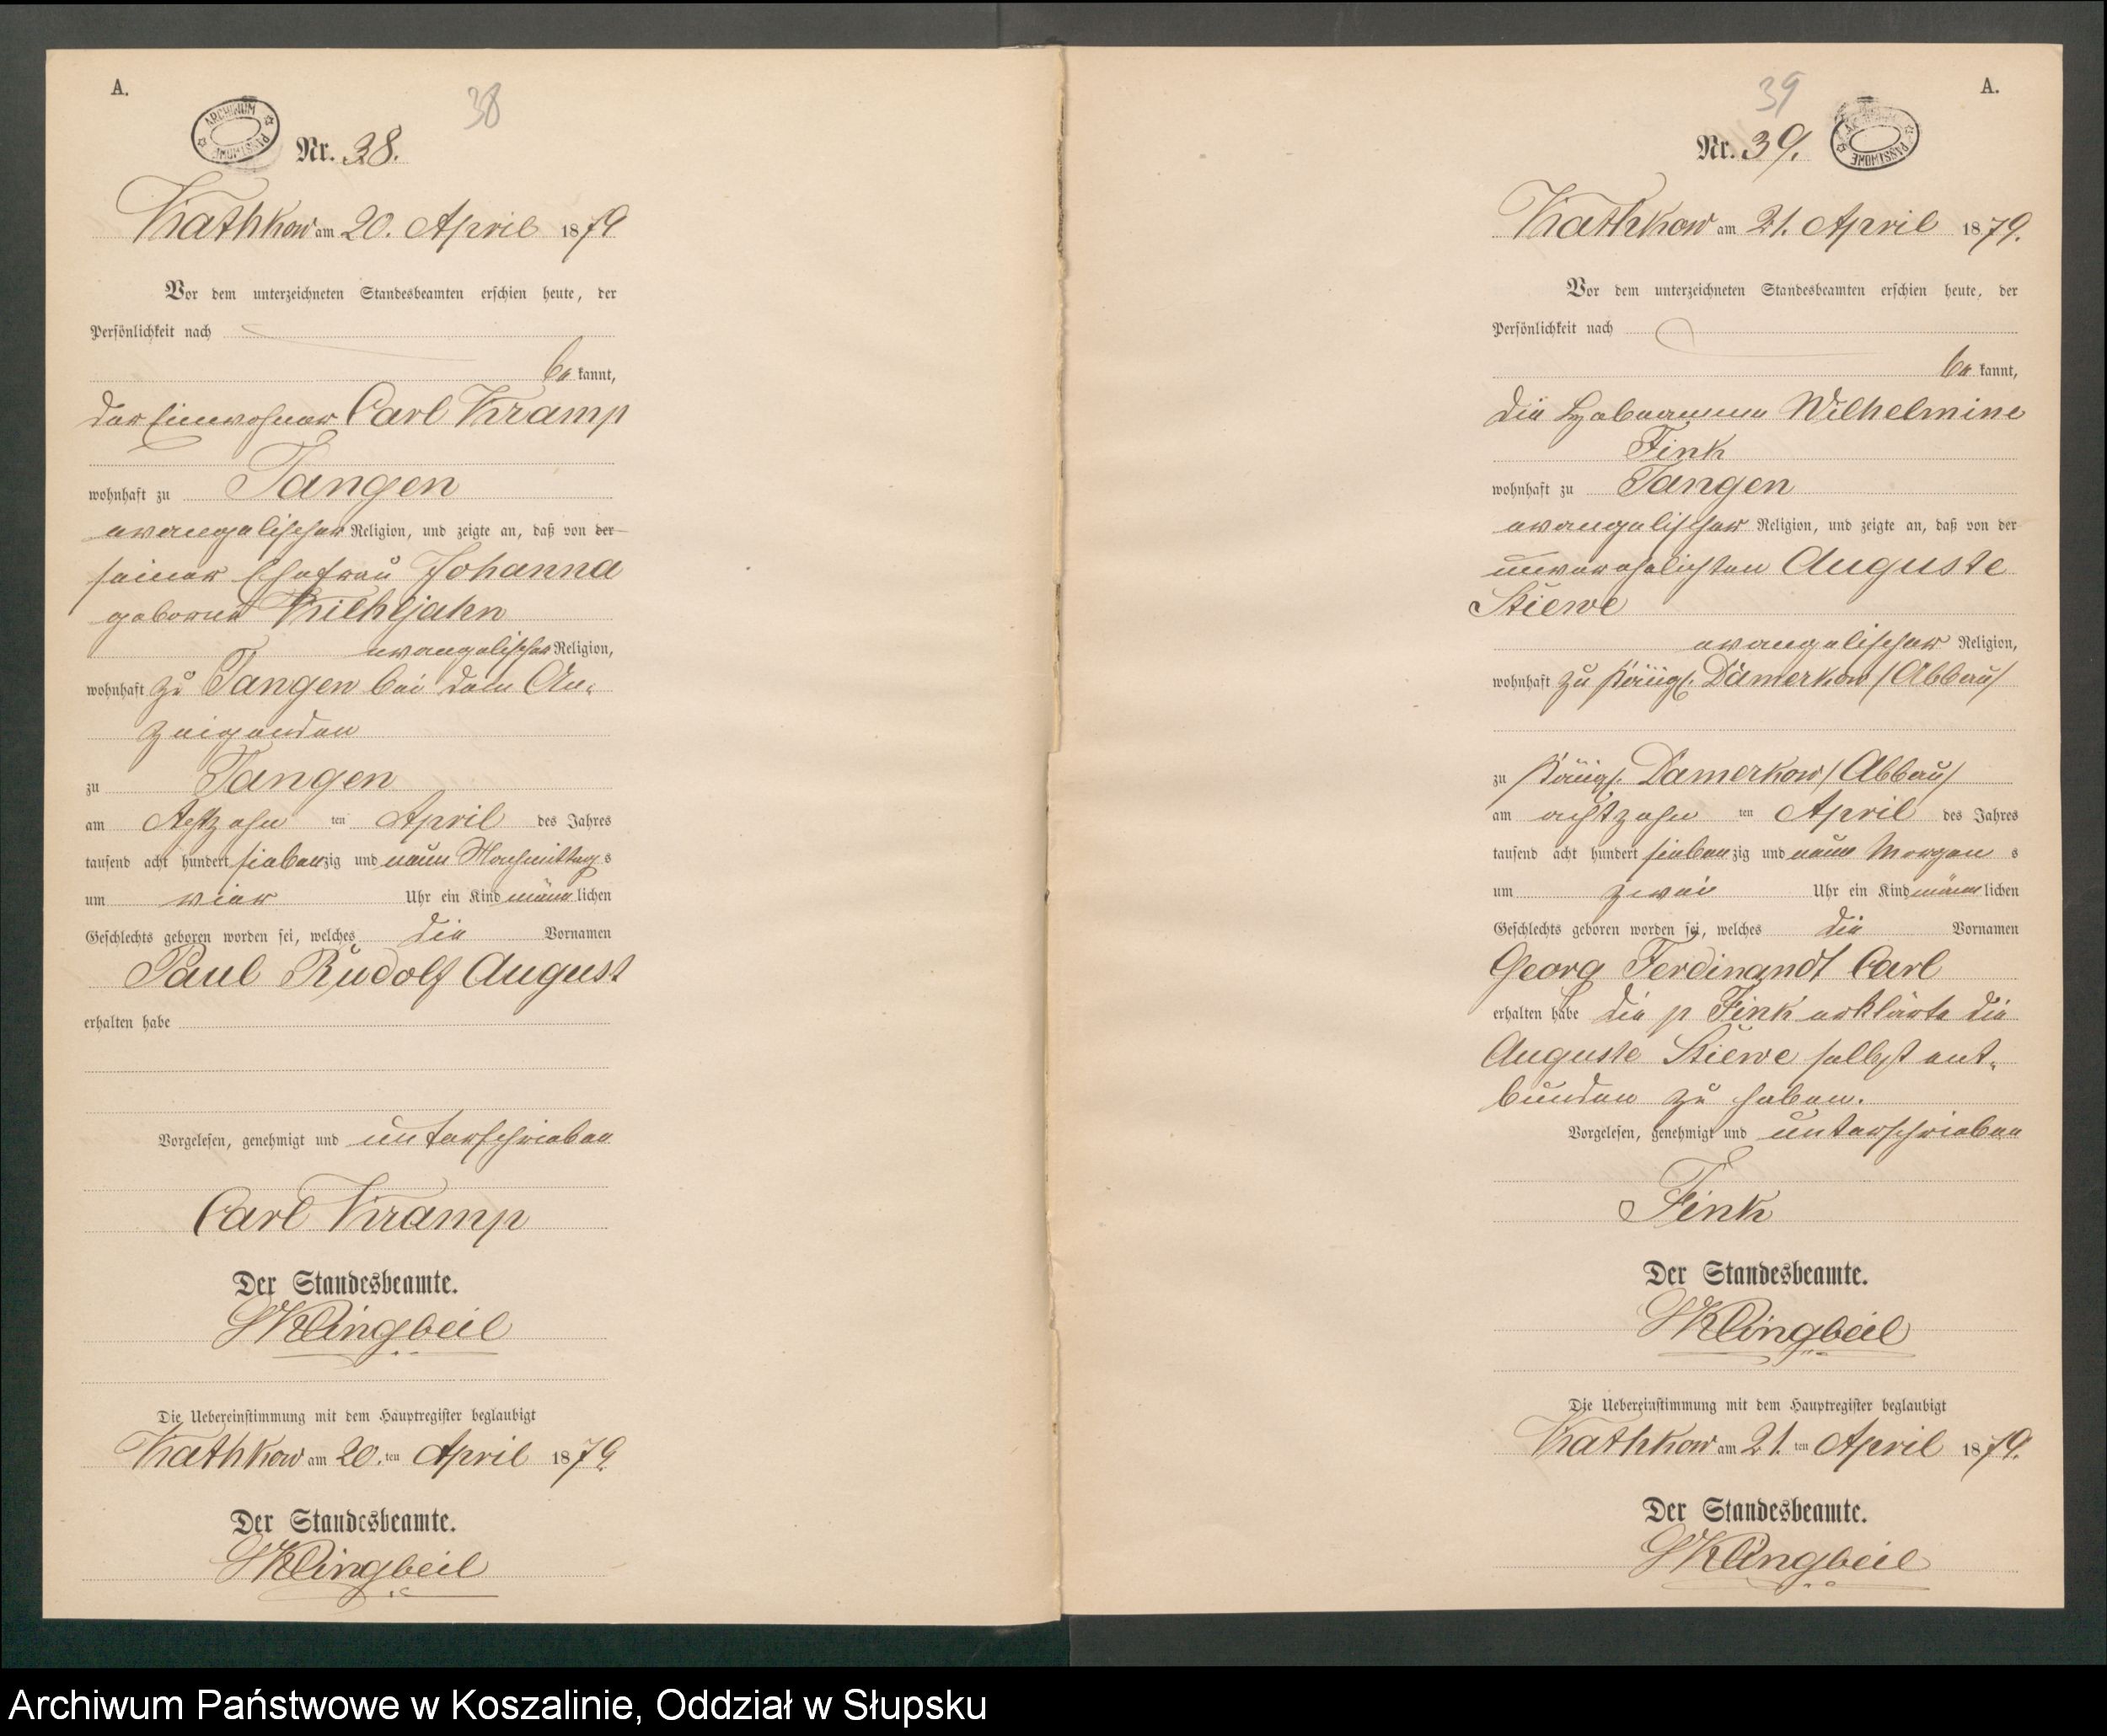 A.
38
ARCHIWUM PAŃSTWOWE
Nr. 38.
Kathkow am 20. April 1879
Vor dem unterzeichneten Standesbeamten erschien heute, der
Persönlichkeit nach
be kannt,
der Einwohner Carl Kramp
wohnhaft zu Tangen
evangelischer Religion, und zeigte an, daß von der
seiner Ehefrau Johanna
geborne
evangelischer Religion,
wohnhaft zu Tangen bei dem An-
zeigenden
zu Tangen
am Achtzehn ten April des Jahres
tausend acht hundert siebenzig und neun Nachmittag s
um vier Uhr ein Kind männ lichen
Geschlechts geboren worden sei, welches die Vornamen
Paul Rudolf August
erhalten habe
Vorgelesen, genehmigt und unterschrieben
Carl Kramp
Der Standesbeamte.
Klingbeil
Die Uebereinstimmung mit dem Hauptregister beglaubigt
Kathkow am 20. ten April 1879.
Der Standesbeamte.
Klingbeil
39
A.
Nr. 39.
ARCHIWUM PAŃSTWOWE
Kathkow am 21. April 1879.
Vor dem unterzeichneten Standesbeamten erschien heute, der
Persönlichkeit nach
be kannt,
die Hebeamme Wilhelmine
Fink
wohnhaft zu Tangen
evangelischer Religion, und zeigte an, daß von der
unverehelichten Auguste
Stiewe
evangelischer Religion,
wohnhaft zu Königl. Damerkow /Abbau/
zu Königl. Damerkow /Abbau/
am achtzehn ten April des Jahres
tausend acht hundert siebenzig und neun Morgen s
um zwei Uhr ein Kind männ lichen
Geschlechts geboren worden sei, welches die Vornamen
Georg Ferdinandt Carl
erhalten habe die p Fink erklärte die
Auguste Stiewe selbst ent-
bunden zu haben.
Vorgelesen, genehmigt und unterschrieben
Fink
Der Standesbeamte.
Klingbeil
Die Uebereinstimmung mit dem Hauptregister beglaubigt
Kathkow am 21. ten April 1879.
Der Standesbeamte.
Klingbeil
Archiwum Państwowe w Koszalinie, Oddział w Słupsku